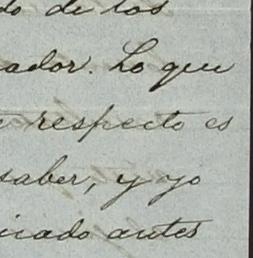 do de los
ador. Lo que
respecto es
saber, y yo
icado antes